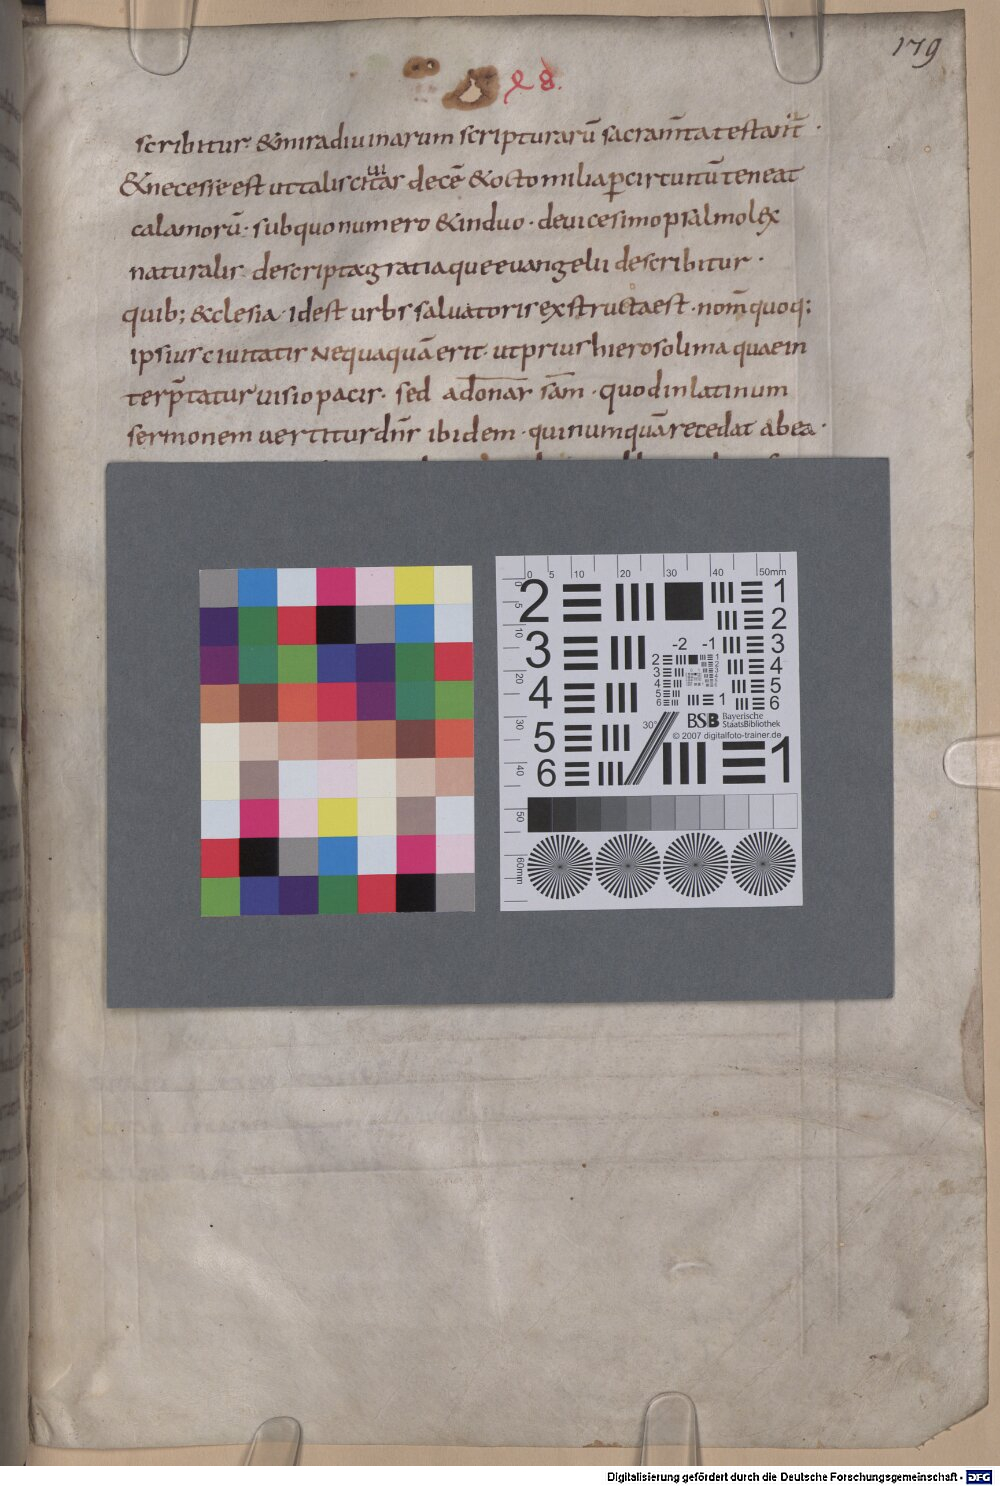 179
l 8.
scribitur &miradiuinarum scripturarū sacram̄tatestant̄ ·
&necesseest uttaliscitas decē &octomiliapcircuitū teneat
calamorū · subquonumero &induo · deuicesimopsalmolex
naturalis descripta&gratiaqueeuangelii describitur ·
quib; &clesia · idest urbs saluatoris exstructaest · nom̄quoq;
ipsius ciuitatis nequaquā erit · utprius hierosolima quaein
terp̄tatur uisiopacis · sed adonai sām · quodinlatinum
sermonem uertitur dn̄s ibidem · quinumquā recedat abea ·
0 5 10 20 30 40 50mm
0 5 10 20 30 40 50 60mm
2 3 4 5 6
-2 -1
1 2 3 4 5 6
1
30°
BSB Bayerische
StaatsBibliothek
© 2007 digitalfoto-trainer.de
1
Digitalisierung gefördert durch die Deutsche Forschungsgemeinschaft - DFG